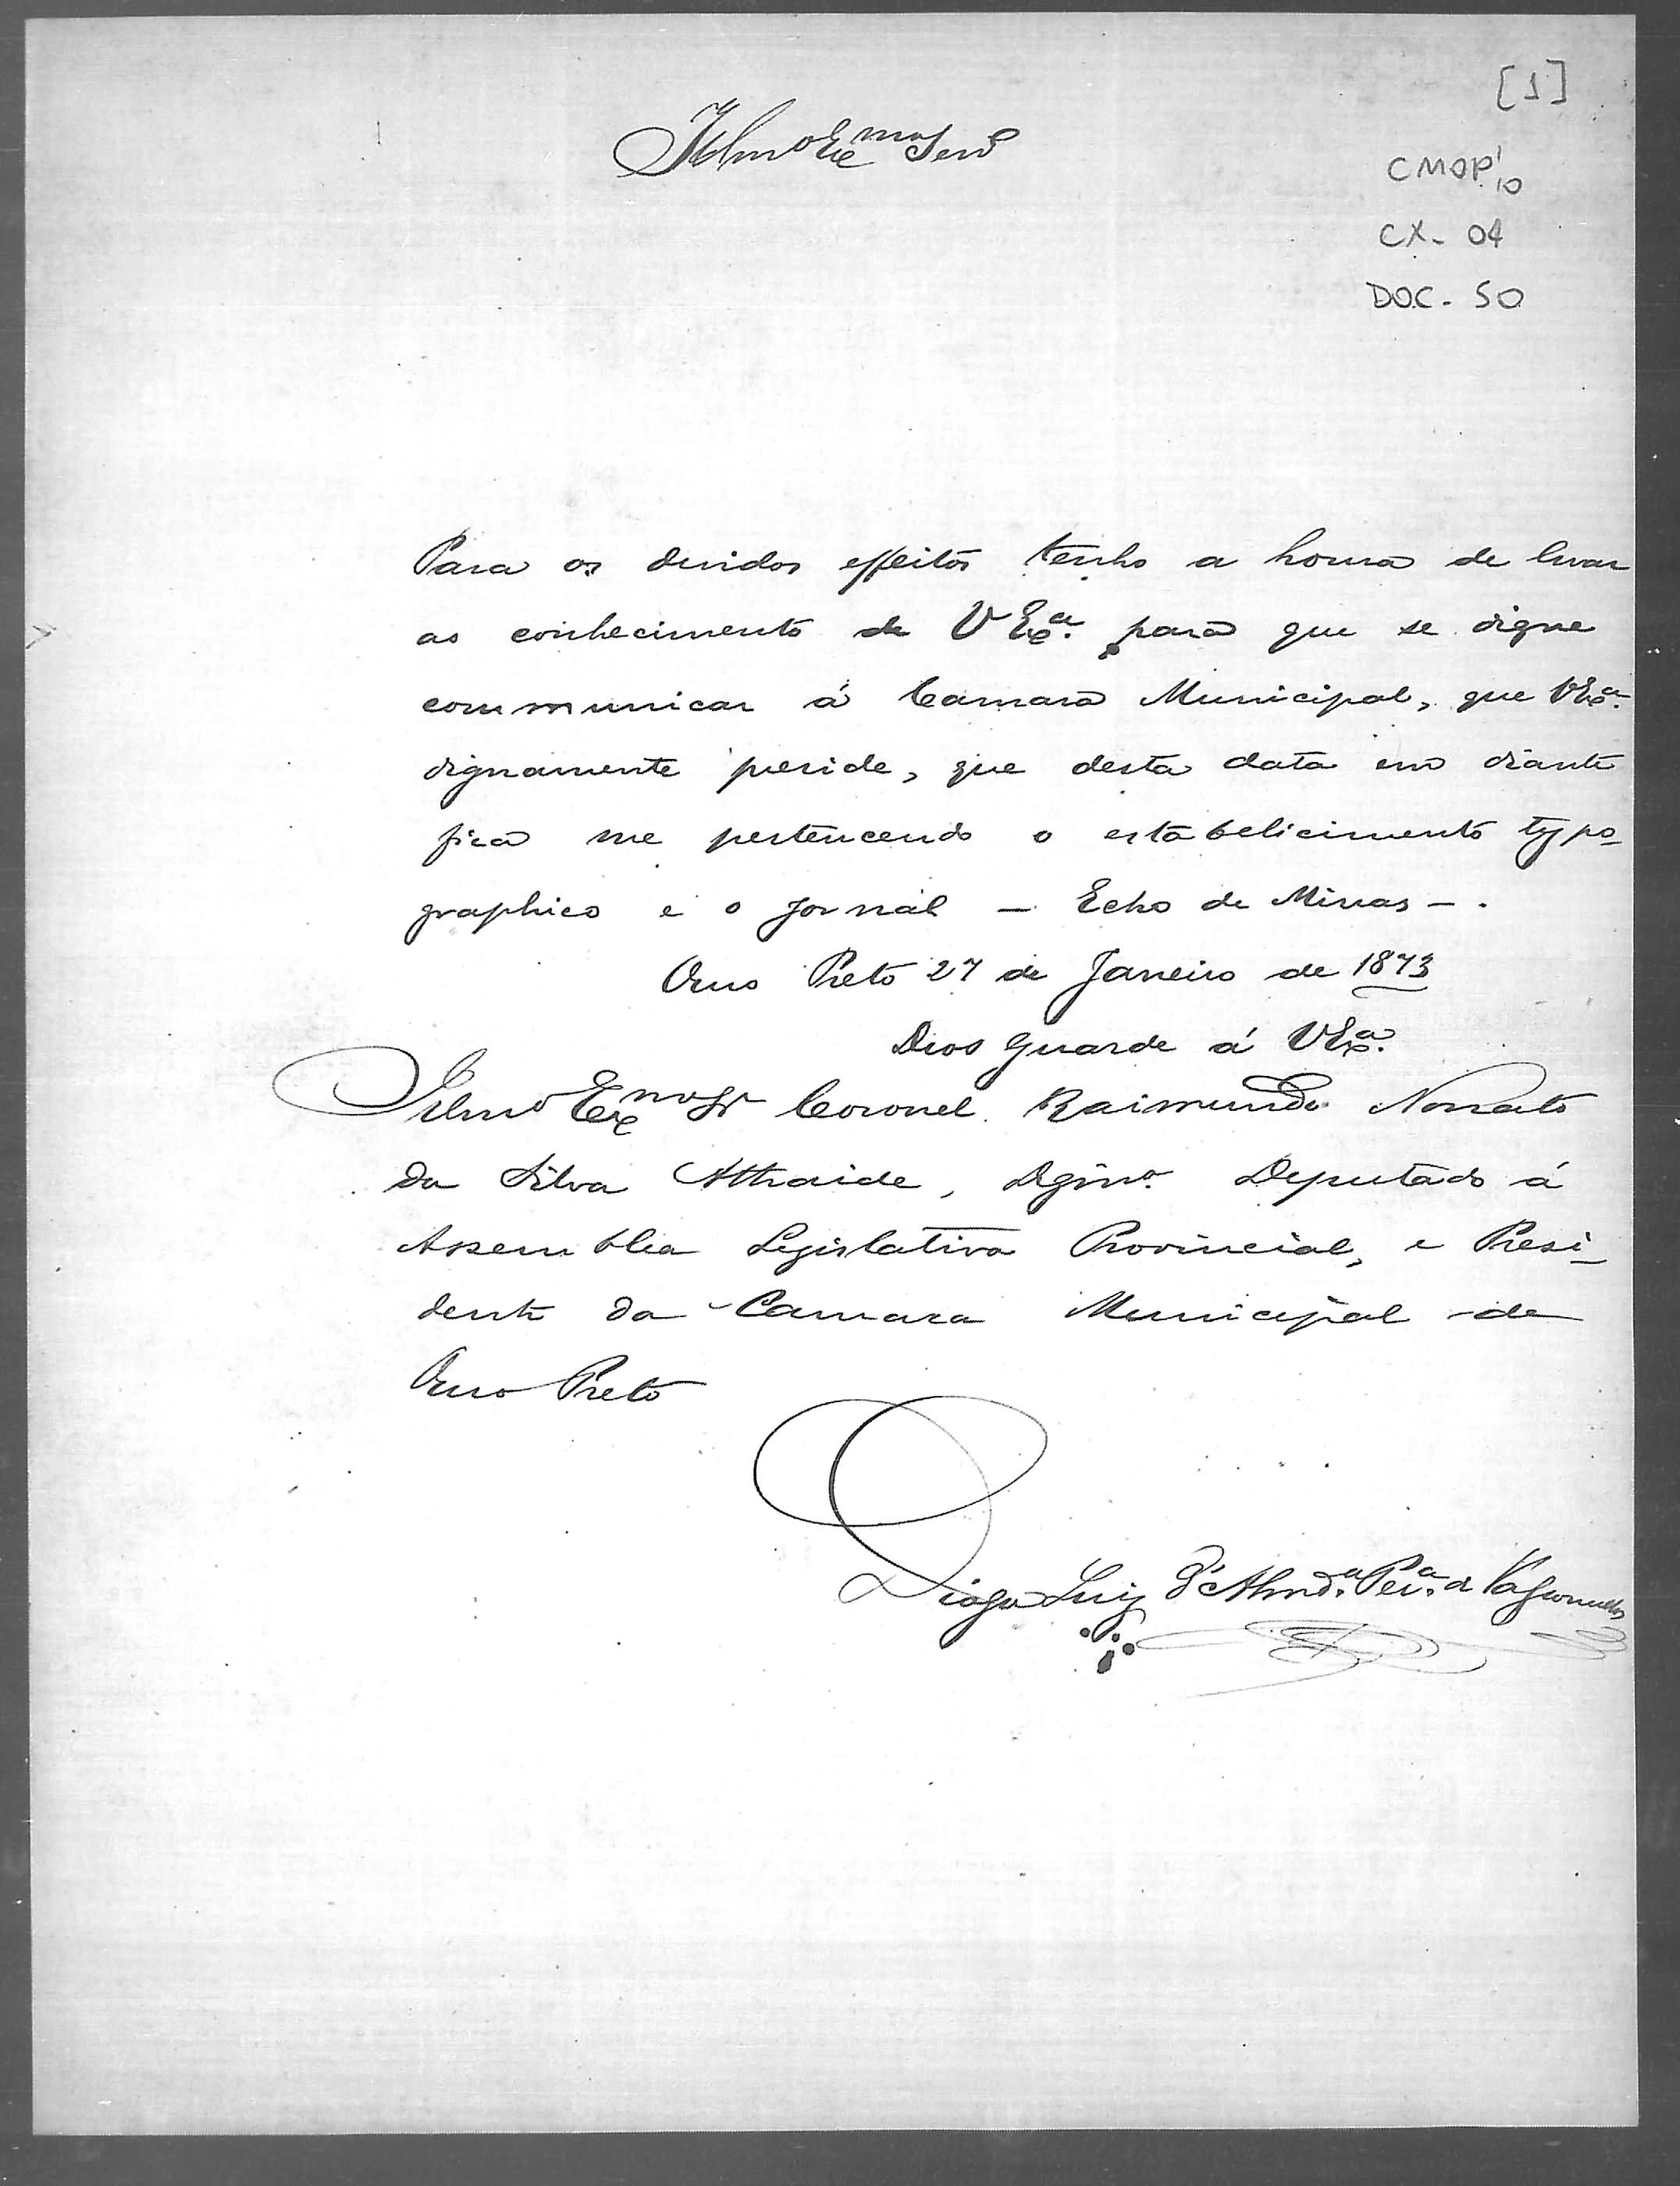 [1]
Illmo Exmo Senr
CMOP 1/10
CX- 04
DOC- 50
Para os devidos effeitos tenho a honra de levar
ao conhecimento de V Exa. para que se digne
communicar á Camara Municipal, que VExa.
dignamente preside, que desta data em diante
fica me pertencendo o estabelicimento typo-
graphico e o Jornal - Echo de Minas - .
Ouro Preto 27 de Janeiro de 1873
Deos Guarde á VExa.
Illmo Exmo Sr Coronel Raimundo Nonato
da Silva Athaide, Dgmo. Deputado á
Assemblea Legislativa Provincial, e Presi-
dente da Camara Municipal de
Ouro Preto
Diogo Luiz d'Almda. Pera. de Vasconcellos